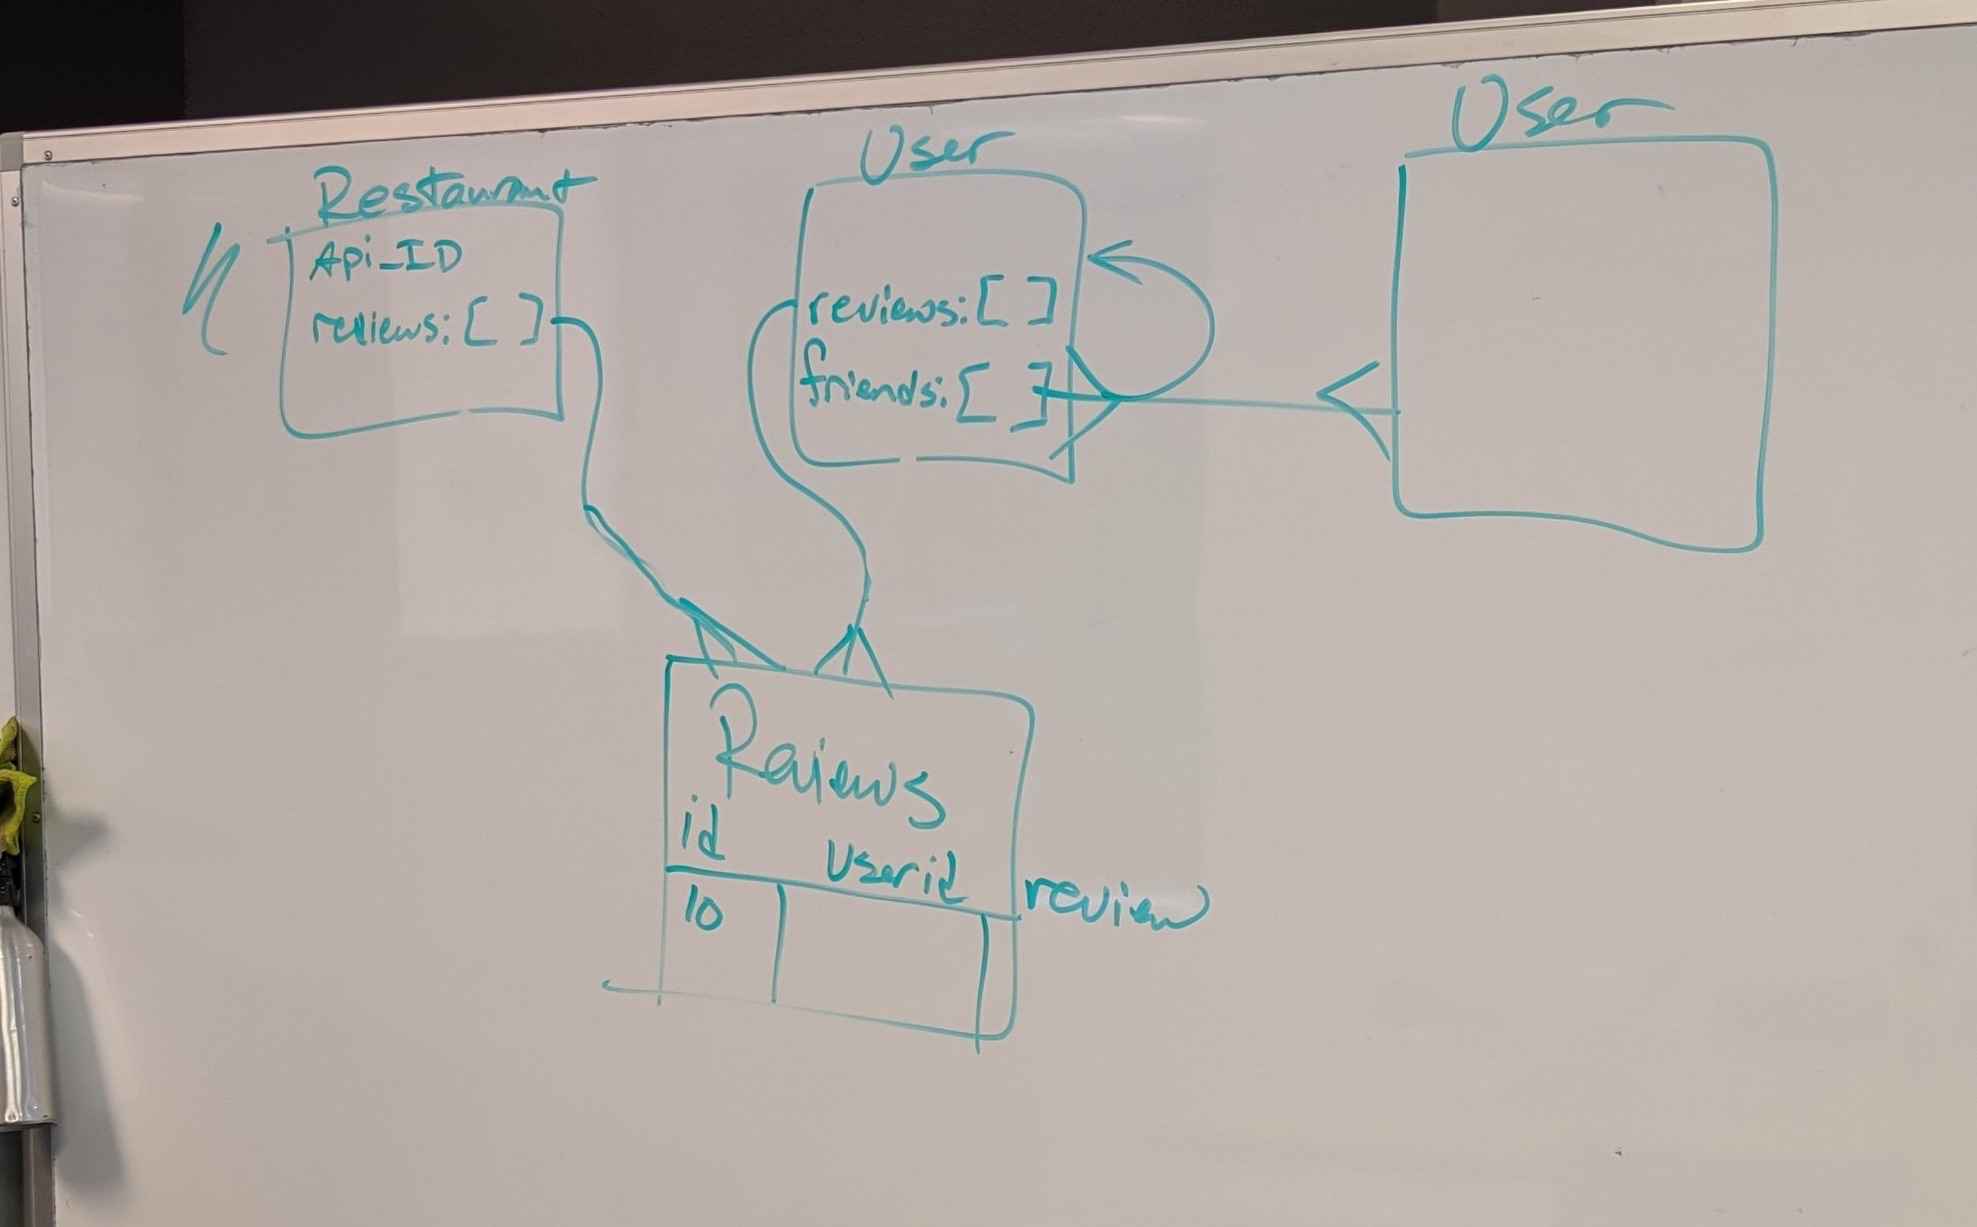 Restaurant
Api_ID
reviews: [ ]
User
reviews: [ ]
friends: [ ]
User
Reviews
id
Userid
review
10